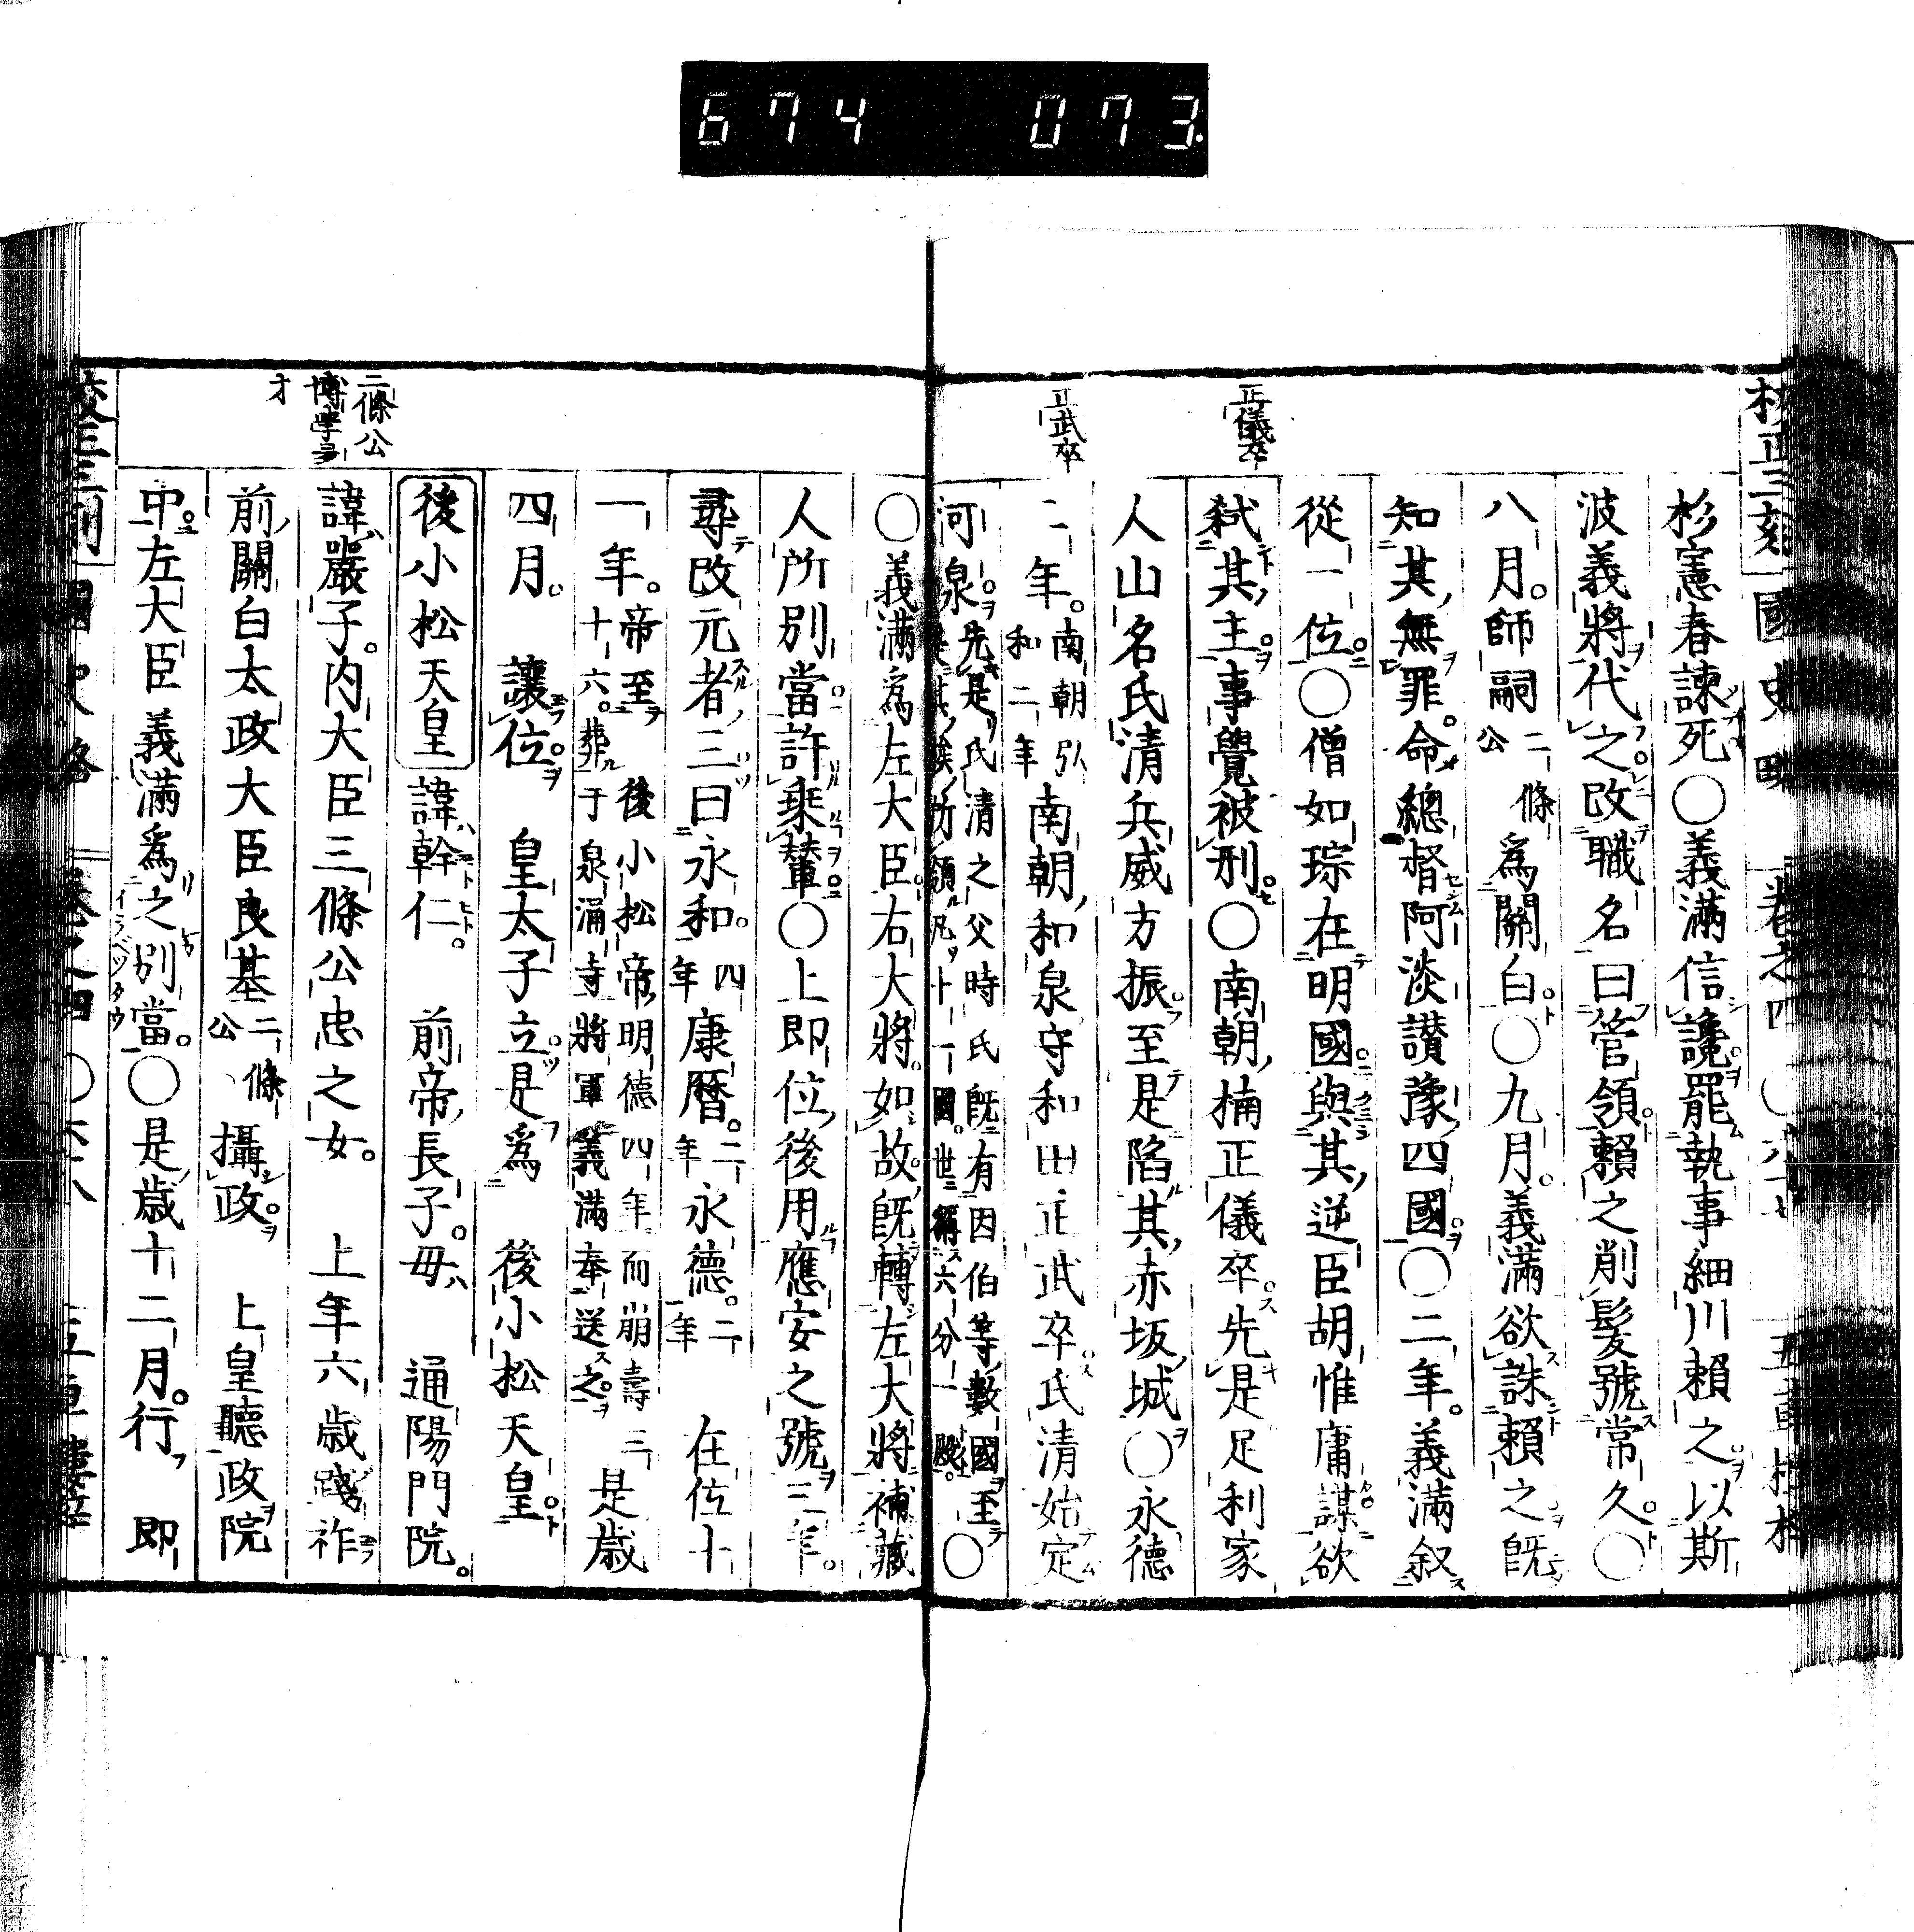 674 073
國史略 卷之四
正儀卒
正武卒
杉憲春諫死〇義滿信讒罷執事細川賴之以斯
波義將代之改職名曰管領賴之削髮號常久〇
八月師嗣二條公爲關白〇九月義滿欲誅賴之既
知其無罪命總督阿淡讃豫四國〇二年義滿叙
從一位〇僧如琮在明國與其逆臣胡惟庸謀欲
弑其主事覺被刑〇南朝楠正儀卒先是足利家
人山名氏清兵威方振至是陷其赤坂城〇永德
二年南朝弘和二年南朝和泉守和田正武卒氏清始定
河泉先是氏清之父時氏既有因伯等數國至其族所領凡十一國世稱六分一殿〇
二條公博學多才
〇義滿爲左大臣右大將如故既轉左大將補藏
人所別當許乘輦〇上即位後用應安之號三年
尋改元者三曰永和四年康曆二年永德二年 在位十
一年帝至後小松帝明德四年而崩壽三十六葬于泉涌寺將軍義滿奉送之是歲
四月 讓位 皇太子立是爲 後小松天皇
後小松天皇 諱幹仁 前帝長子母 通陽門院
諱嚴子内大臣三條公忠之女 上年六歲踐祚
前關白太政大臣良基二條公攝政 上皇聽政院
中左大臣義滿爲之別當〇是歲十二月行 即
イラベッタウ